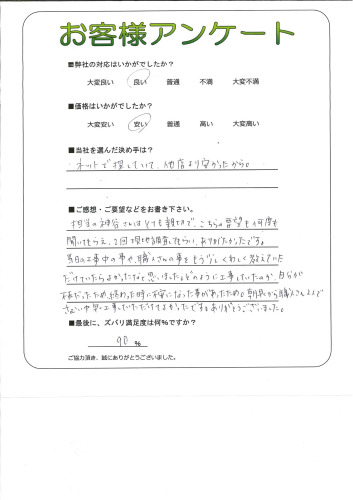 お客様アンケート
■弊社の対応はいかがでしたか？
大変良い 良い 普通 不満 大変不満
■価格はいかがでしたか？
大変安い 安い 普通 高い 大変高い
■当社を選んだ決め手は？
ネットで探していて、他店より安かったから。
■ご感想・ご要望などをお書き下さい。
担当の神谷さんはとても親切で、こちらの要望も何度も
聞いてもらえ、2回現地調査してもらい、ありがたかったです。
当日の工事中の事や、職人さんの事をもう少しくわしく教えていた
だけていたらよかったなと思いました。どのように工事していたのか、自分が
不在だったため、終わった時に不安になった事があったため。朝早から職人さん2人で
さむい中 工事していただけてよかったです。ありがとうございました。
■最後に、ズバリ満足度は何％ですか？
90 ％
ご協力頂き、誠にありがとうございました。